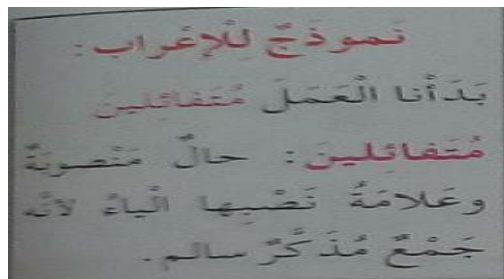 نَموذَجٌ لِلْإعْراب:
بَدَأْنا الْعَمَلَ مُتَفائِلينَ
مُتَفائِلينَ: حالٌ مَنْصوبَةٌ
وعَلامَةُ نَصْبِها الْياءُ لأنَّه
جَمْعُ مُذَكَّرٍ سالم.